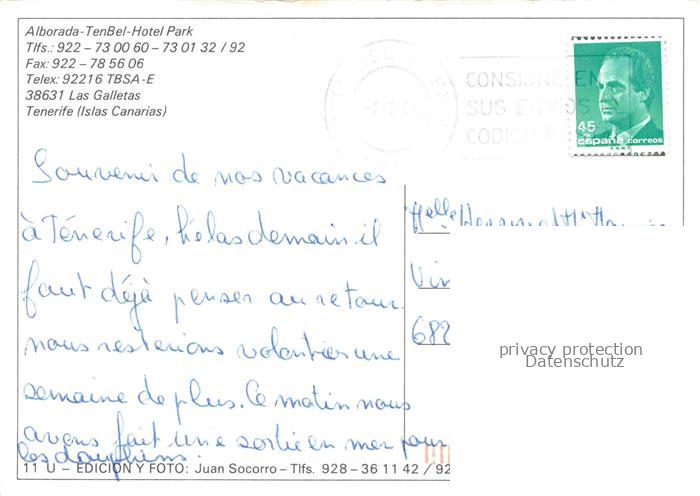 Alborada-TenBel-Hotel Park
Tlfs.: 922 – 73 00 60 – 73 01 32 / 92
Fax: 922 – 78 56 06
Telex: 92216 TBSA-E
38631 Las Galletas
Tenerife (Islas Canarias)
CONSIGNE EN
SUS ENVIOS
CODIGO
45
españa correos
Souvenir de nos vacances
à Ténerife, hélas demain il
faut déjà penser au retour.
nous resterions volontier une
semaine de plus. Ce matin nous
avons fait une sortie en mer pour
les dauphins.
Melle
Vin
682
privacy protection
Datenschutz
11 U – EDICIÓN Y FOTO: Juan Socorro – Tlfs. 928 – 36 11 42 / 92